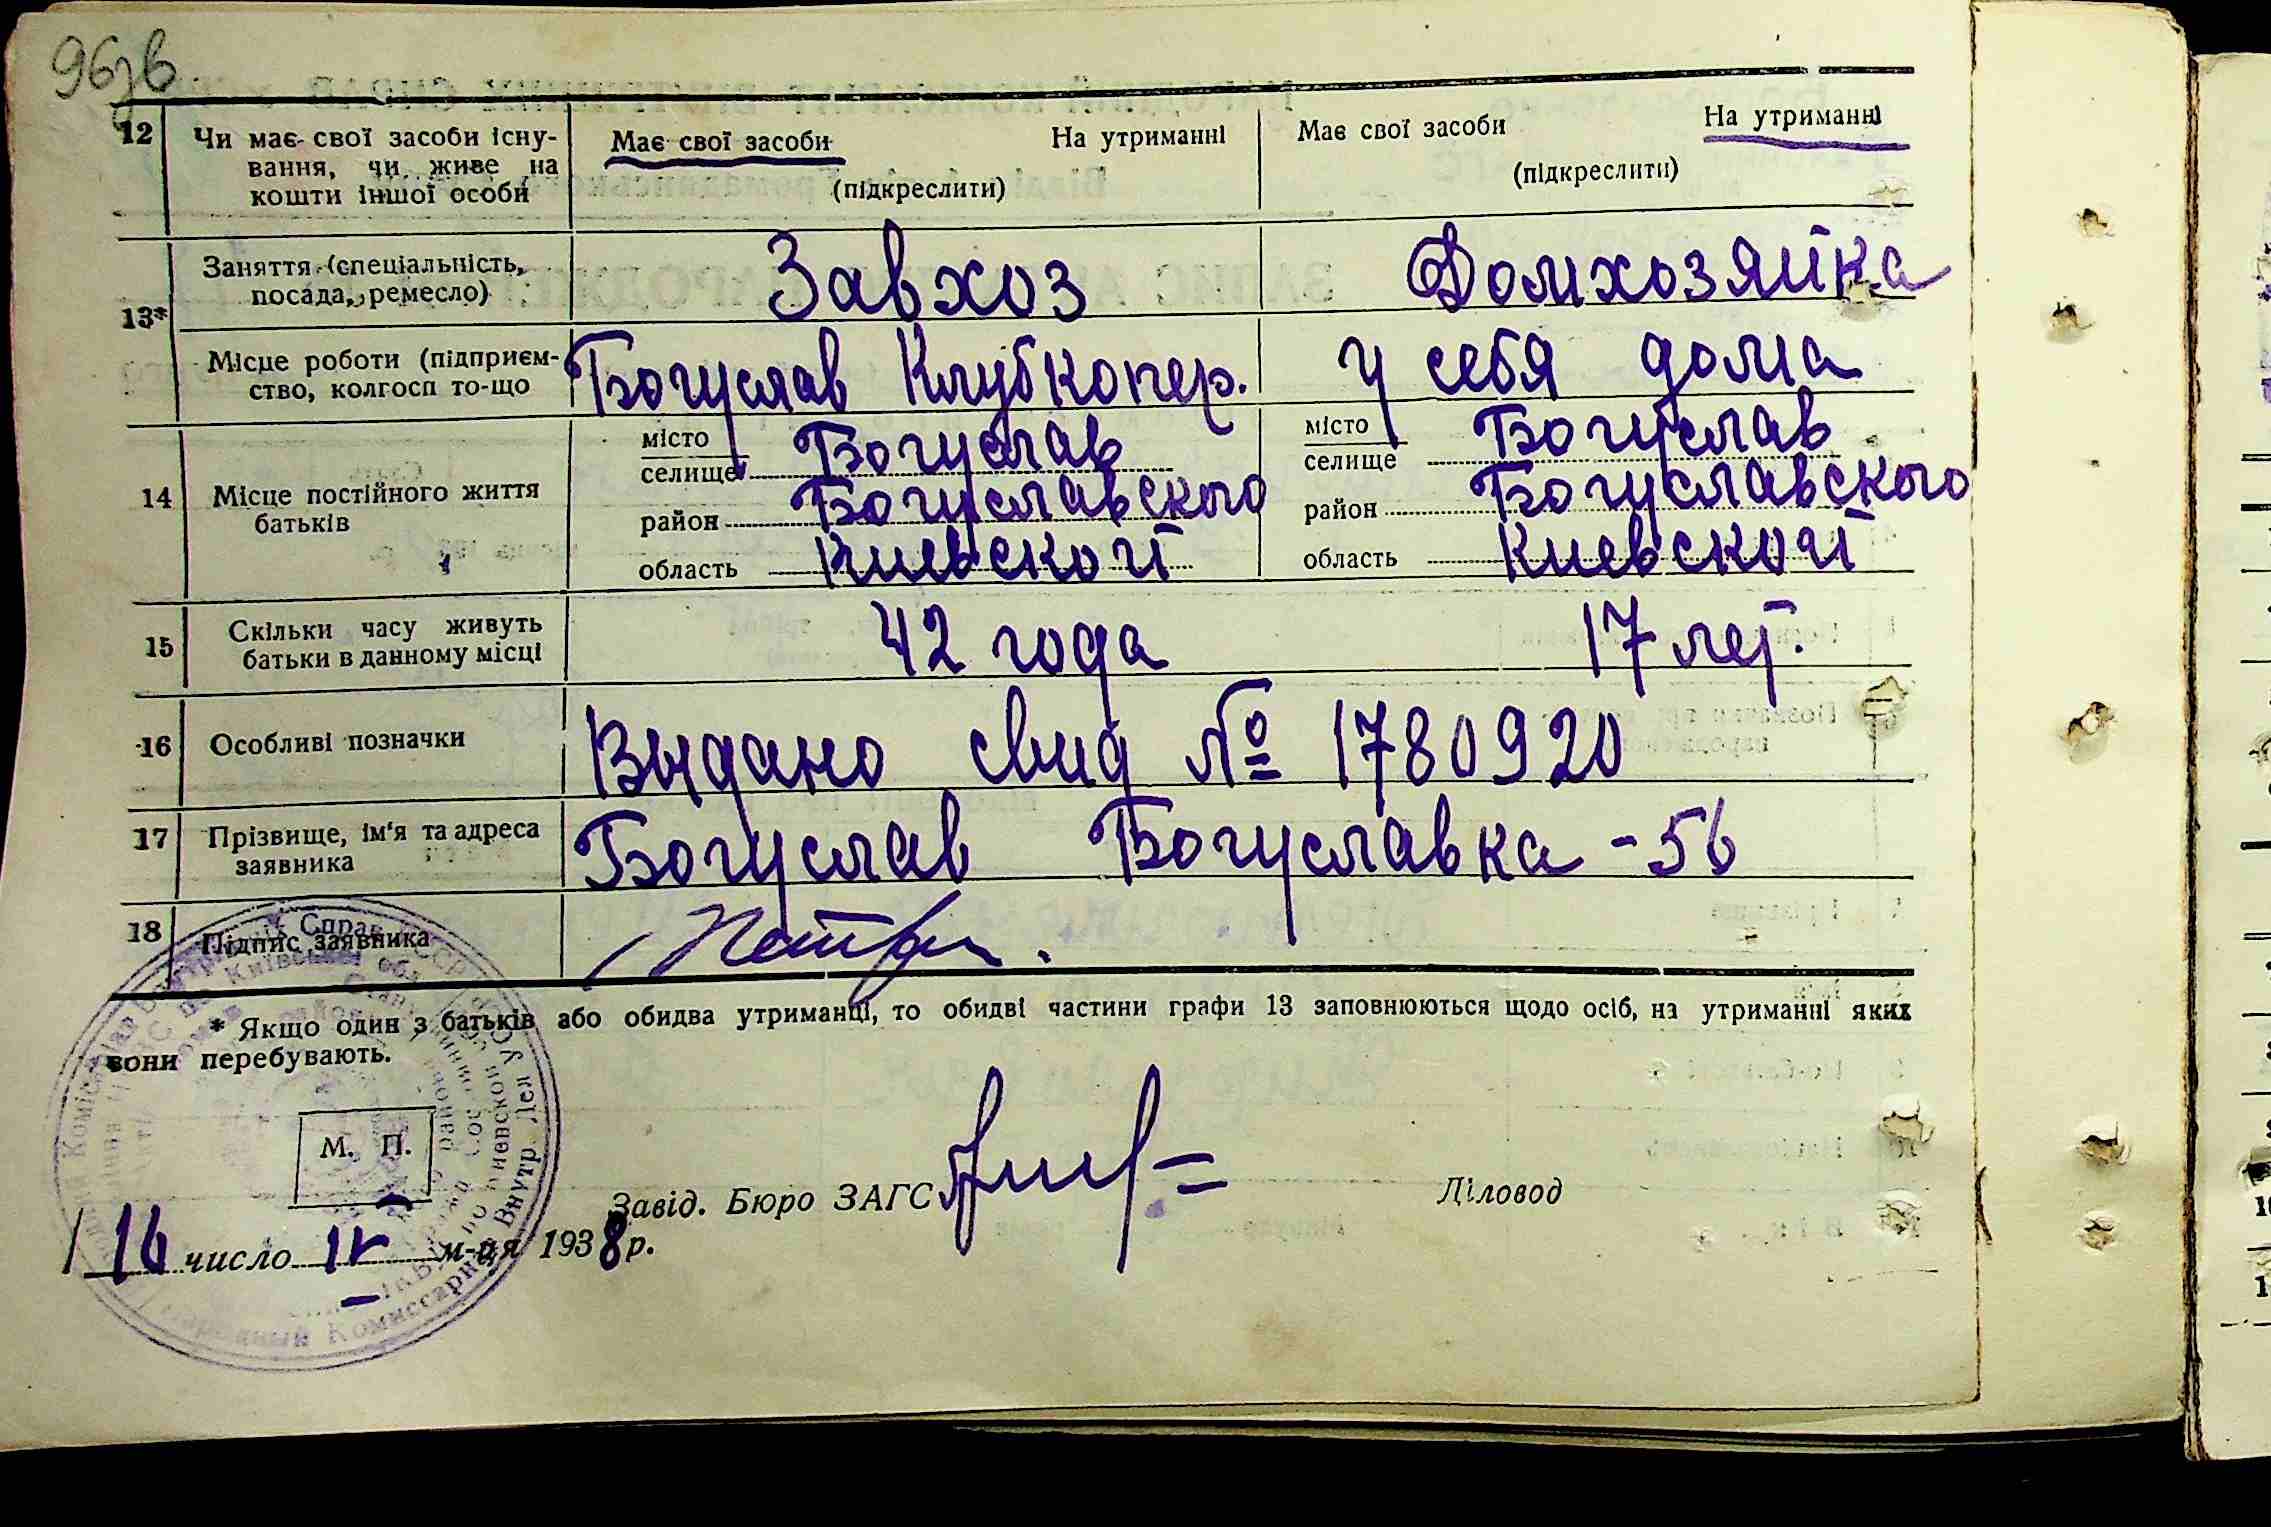 96зв
12 Чи має свої засоби існу-
вання, чи живе на
кошти іншої особи
Має свої засоби На утриманні
(підкреслити)
Має свої засоби На утриманні
(підкреслити)
13*
Заняття (спеціальність,
посада, ремесло)
Завхоз Домхозяйка
Місце роботи (підприєм-
ство, колгосп то-що
Богуслав Клубкопер. у себя дома
14 Місце постійного життя
батьків
місто
селище Богуслав
район Богуславского
область Киевской
місто
селище Богуслав
район Богуславского
область Киевской
15 Скільки часу живуть
батьки в данному місці
42 года 17 лет.
16 Особливі позначки
Выдано свид № 1780920
17 Прізвище, ім'я та адреса
заявника
Богуслав Богуславка - 56
18 Підпис заявника
* Якщо один з батьків або обидва утриманці, то обидві частини графи 13 заповнюються щодо осіб, на утриманні яких
вони перебувають.
М. П.
Завід. Бюро ЗАГС Діловод
16 число IV м-ця 1938 р.